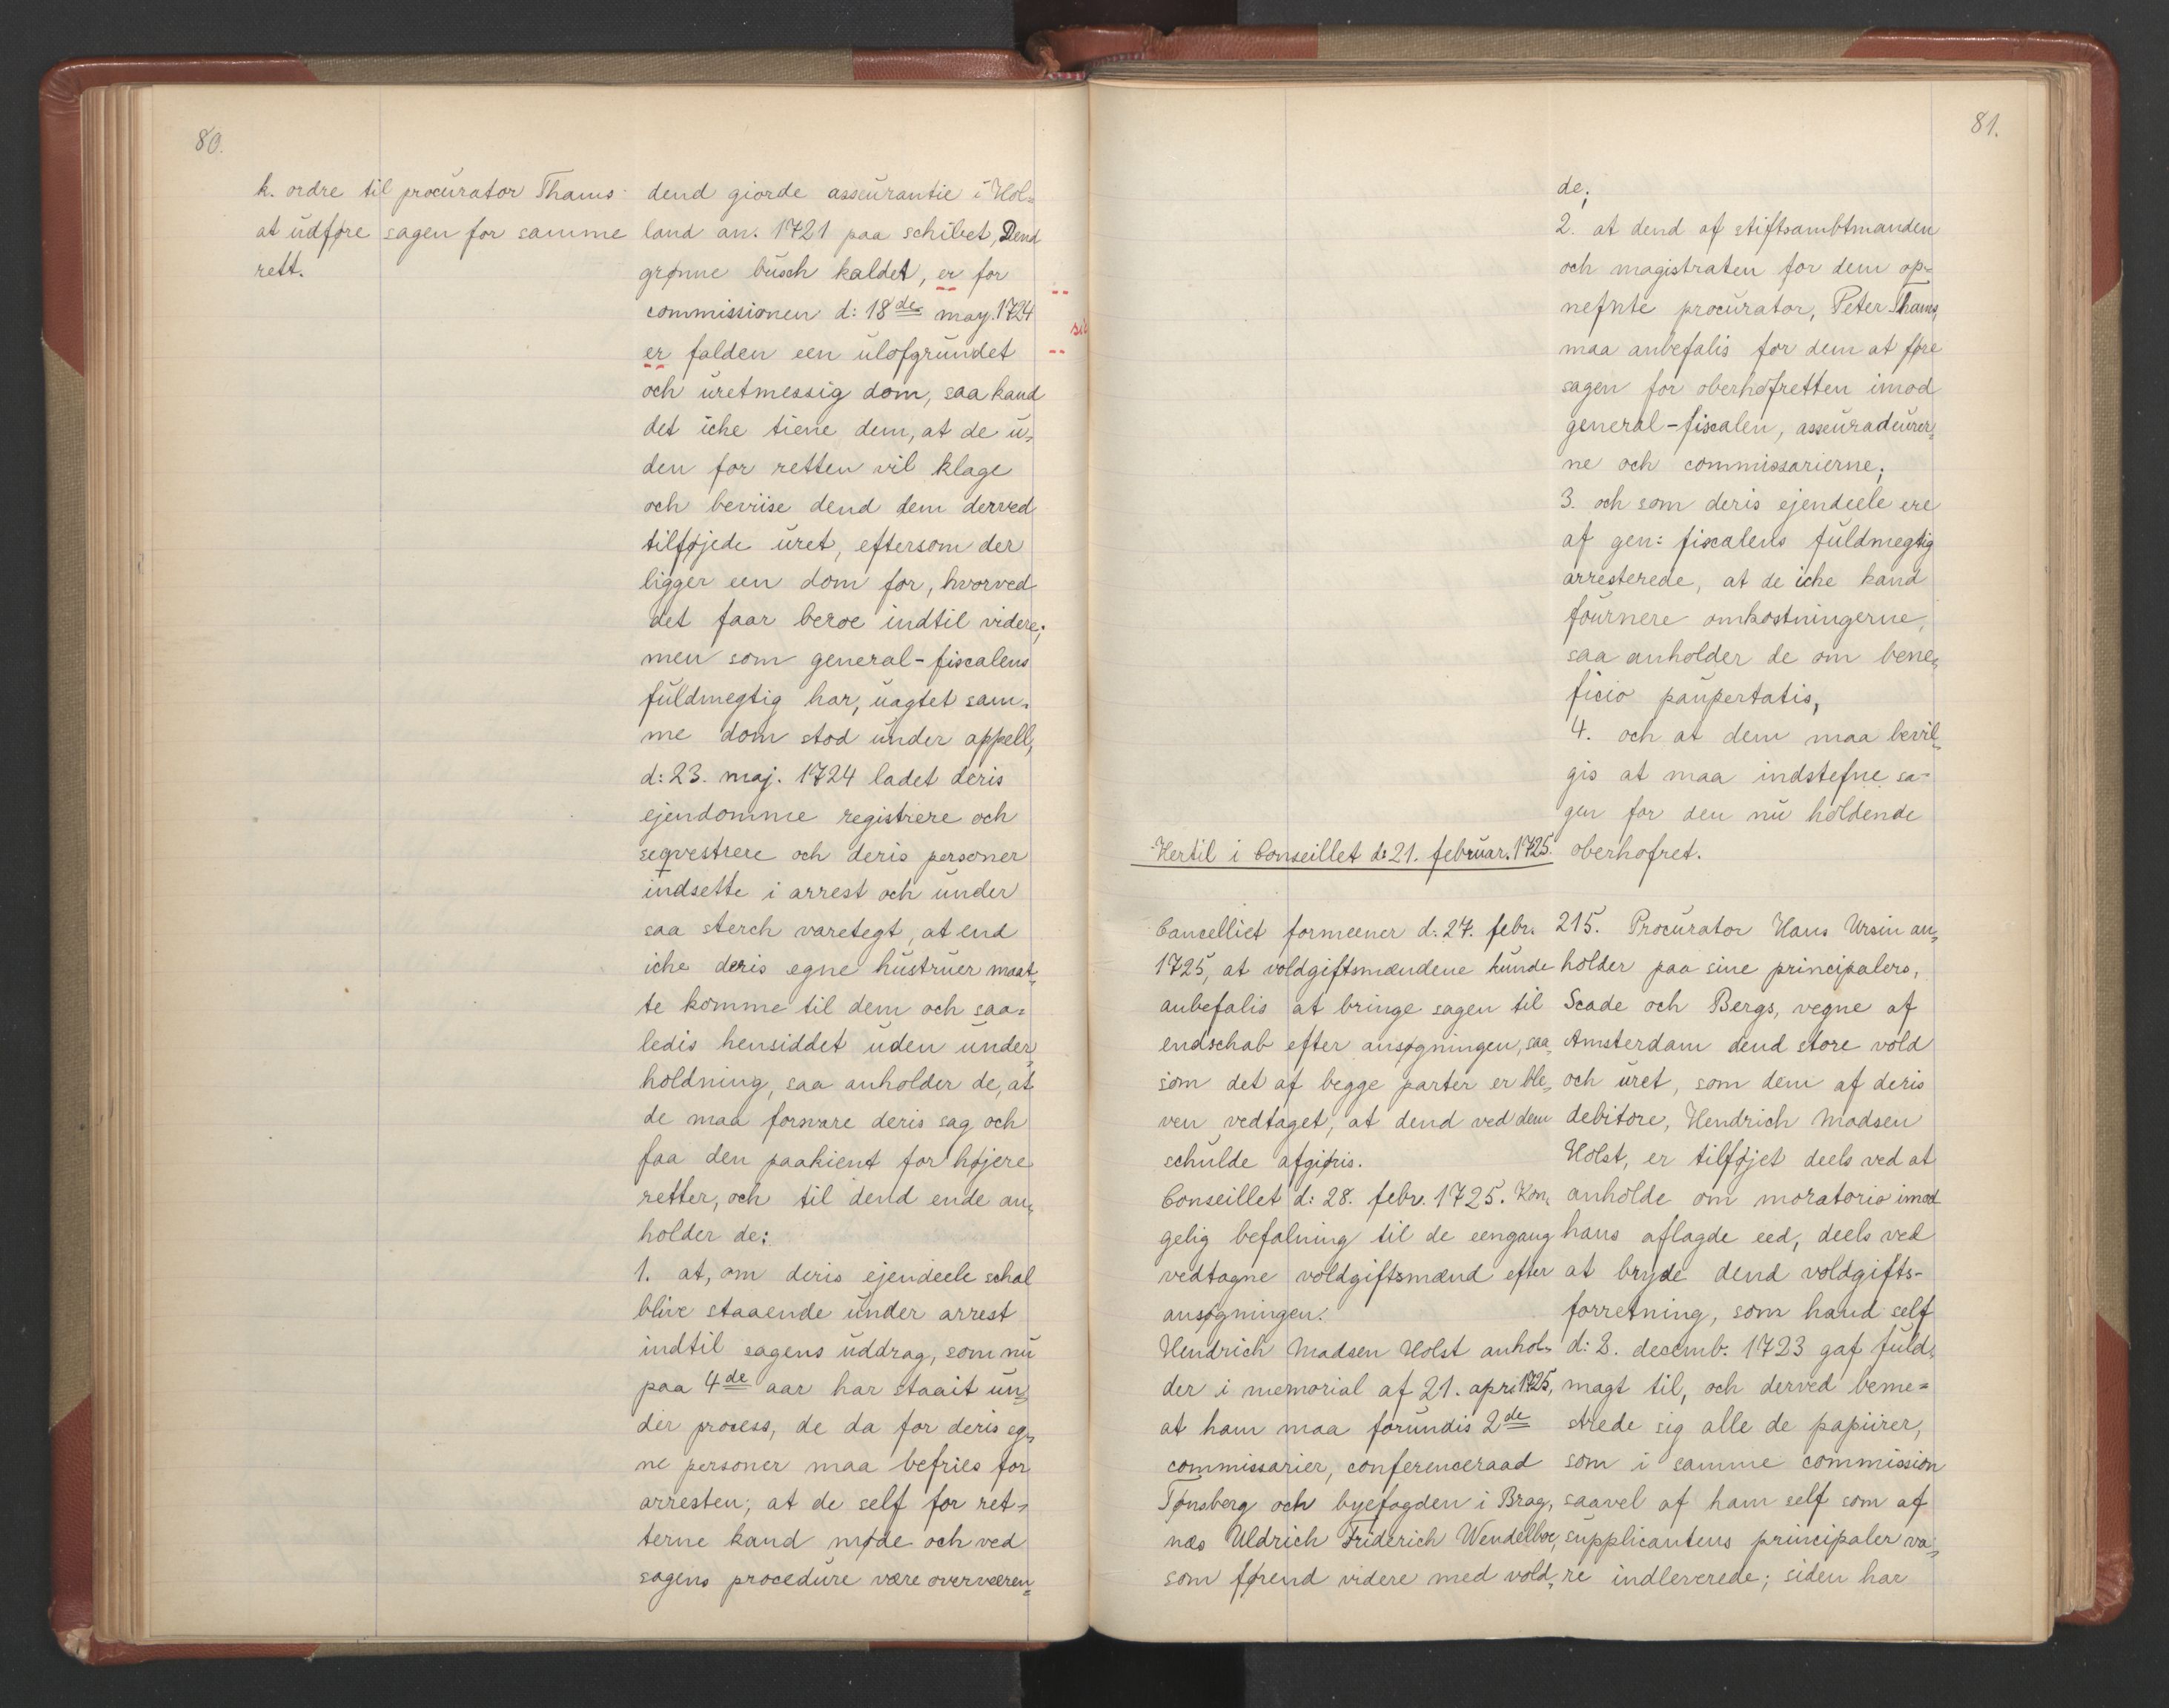 80.
k. ordre til procurator Thams
at udføre sagen for samme
rett.
dend giorde asseurantie i Hol=
land an. 1721 paa schibet, Dend
grønne busch kaldet, er for
commissionen d: 18de may. 1724
sic
er falden een ulofgrundet
och uretmessig dom, saa kand
det iche tiene dem, at de u=
den for retten vil klage
och beviise dend dem derved
tilføjede uret, eftersom der
ligger een dom for, hvorved
det faar beroe indtil videre;
men som general-fiscalens
fuldmegtig har, uagtet sam=
me dom stod under appell,
d: 23. maj. 1724 ladet deris
ejendomme registrere och
seqvestrere och deris personer
indsette i arrest och under
saa sterch varetegt, at end
iche deris egne hustruer maat=
te komme til dem och saa=
ledis hensiddet uden under=
holdning, saa anholder de, at
de maa forsvare deris sag och
faa den paakient for højere
retter, och til dend ende an=
holder de:
1. at, om deris ejendeele schal
blive staaende under arrest
indtil sagens uddrag, som nu
paa 4de aar har staait un=
der process, de da for deris eg=
ne personer maa befries for
arresten; at de self for ret=
terne kand møde och ved
sagens procedure være overværen=
81.
de;
2. at dend af stiftsambtmanden
och magistraten for dem op=
nefnte procurator, Peter Thams,
maa anbefalis for dem at føre
sagen for oberhofretten imod
general-fiscalen, asseuradeurer=
ne och commissarierne;
3. och som deris ejendeele ere
af gen: fiscalens fuldmegtig
arresterede, at de iche kand
fournere omkostningerne,
saa anholder de om bene=
ficio paupertatis,
4. och at dem maa bevil=
gis at maa indstefne sa=
gen for den nu holdende
oberhofret.
Hertil i Conseillet d: 21. februar. 1725.
Cancelliet formeener d. 27. febr.
1725, at voldgiftsmændene kunde
anbefalis at bringe sagen til
endschab efter ansøgningen, saa=
som det af begge parter er ble=
ven vedtaget, at dend ved dem
schulde afgiøris.
Conseillet d: 28. febr. 1725. Kon=
gelig befalning til de eengang
vedtagne voldgiftsmænd efter
ansøgningen.
Hendrich Madsen Holst anhol=
der i memorial af 21. apr. 1725,
at ham maa forundis 2de
commissarier, conferenceraad
Tønsberg och byefogden i Brag=
næs Uldrich Friderich Wendelboe,
som førend videre med vold=
215. Procurator Hans Ursin an=
holder paa sine principalers,
Scade och Bergs, vegne af
Amsterdam dend store vold
och uret, som dem af deris
debitore, Hendrich Madsen
Holst, er tilføjet deels ved at
anholde om moratorio imod
hans aflagde eed, deels ved
at bryde dend voldgifts-
forretning, som hand self
d: 2. decemb. 1723 gaf fuld=
magt til, och derved beme=
strede sig alle de papiirer,
som i samme commission
saavel af ham self som af
supplicantens principaler va=
re indleverede; siden har